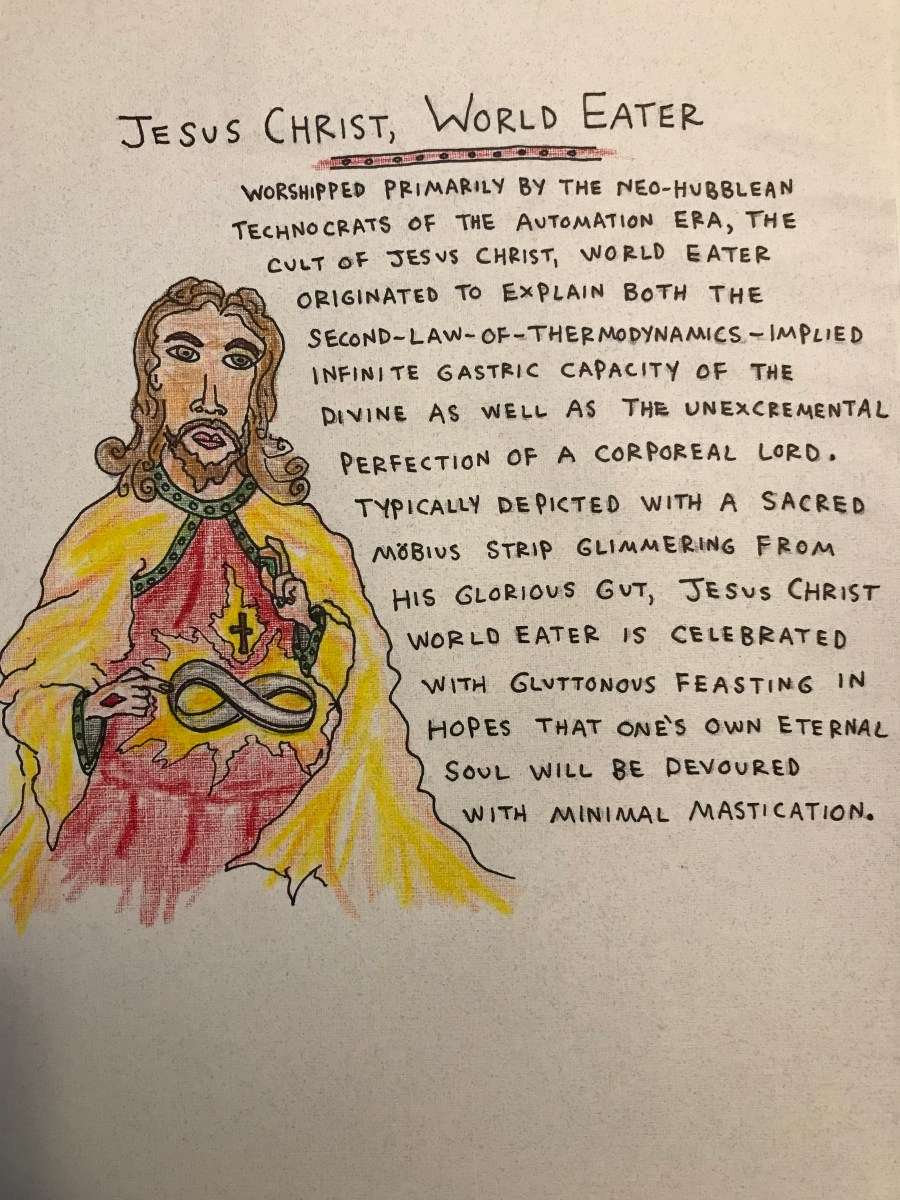 JESUS CHRIST, WORLD EATER
WORSHIPPED PRIMARILY BY THE NEO-HUBBLEAN
TECHNOCRATS OF THE AUTOMATION ERA, THE
CULT OF JESUS CHRIST, WORLD EATER
ORIGINATED TO EXPLAIN BOTH THE
SECOND-LAW-OF-THERMODYNAMICS-IMPLIED
INFINITE GASTRIC CAPACITY OF THE
DIVINE AS WELL AS THE UNEXCREMENTAL
PERFECTION OF A CORPOREAL LORD.
TYPICALLY DEPICTED WITH A SACRED
MÖBIUS STRIP GLIMMERING FROM
HIS GLORIOUS GUT, JESUS CHRIST
WORLD EATER IS CELEBRATED
WITH GLUTTONOUS FEASTING IN
HOPES THAT ONE'S OWN ETERNAL
SOUL WILL BE DEVOURED
WITH MINIMAL MASTICATION.